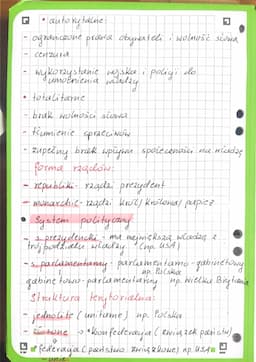 • autorytalne:
- ograniczone prawa obywateli i wolność słowa
- cenzura
- wykorzystanie wojska i policji do
umocnienia władzy
• totalitarne
- brak wolności słowa
- tłumienie sprzeciwów
- zupełny brak wpływu społeczeństwa na władzę
forma rządów:
- republika - rządzi prezydent
- monarchie - rządzi król/królowa/papież
• System polityczny
- s. prezydencki - ma największą władzę z
trójpodziału władzy (np. USA)
- s. parlamentarny - parlamentarno-gabinetowy
np. Polska
gabinetowo-parlamentarny np. Wielka Brytania
Struktura terytorialna:
- jednolite (unitarne) np. Polska
- złożone → • konfederacja (związek państw)
• federacja (państwo związkowe) np. USA